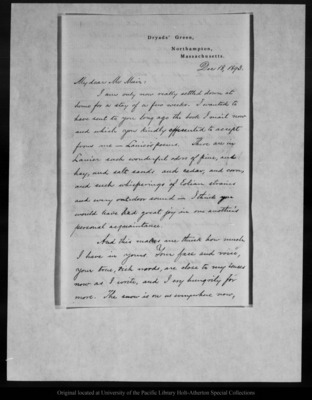 Dryads' Green,
Northampton,
Massachusetts.
Dec 18, 1893.
My dear Mr Muir:
I am only now really settled down at
home for a stay of a few weeks. I wanted to
have sent to you long ago the book I mail now
and which you kindly consented to accept
from me — Lanier's poems. There are in
Lanier such wonderful odors of pine, and
hay, and salt sands and cedar, and corn,
and such whisperings of Eolian strains
and every outdoor sound in I think you
would have had great joy in one another's
personal acquaintance.
And this makes me think how much
I have in yours. Your face and voice,
your true, rich words, are close to my senses
now as I write, and I cry hungrily for
more. The snow is on us everywhere now,
Original located at University of the Pacific Library Holt-Atherton Special Collections